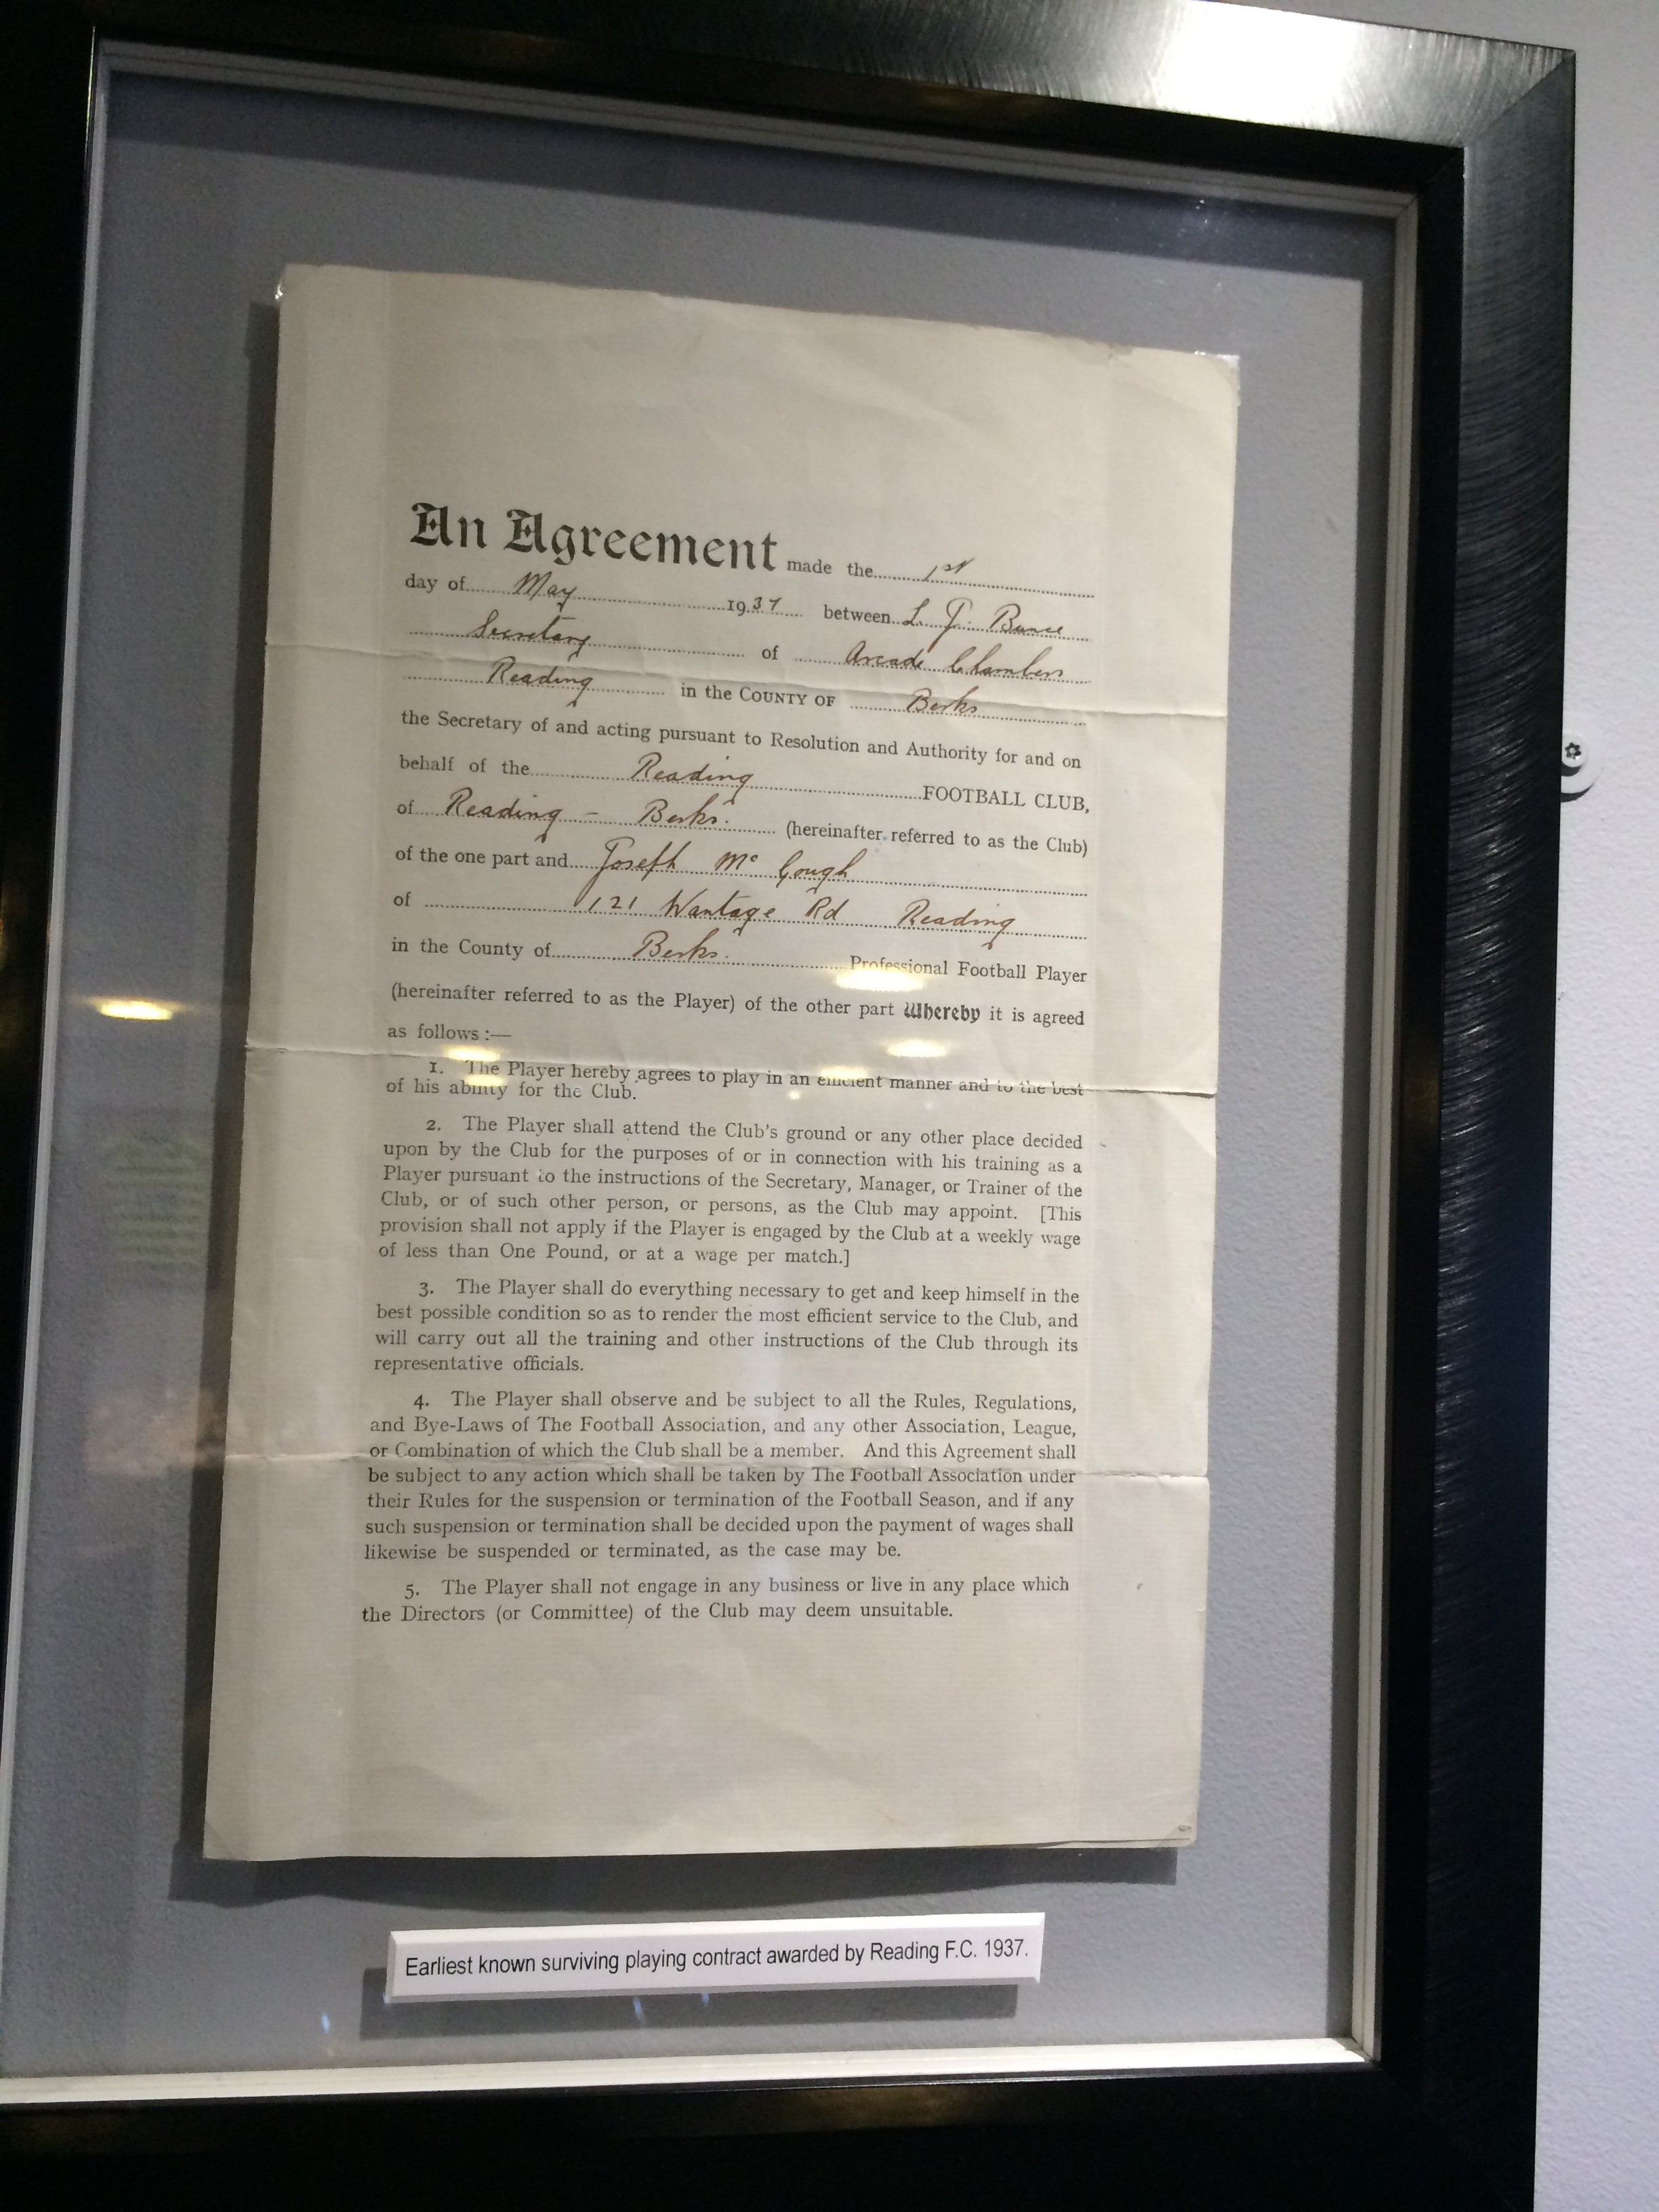 An Agreement made the 1st
day of May 1937 between L. J. Bunce
Secretary of Arcade Chambers
Reading in the COUNTY OF Berks
the Secretary of and acting pursuant to Resolution and Authority for and on
behalf of the Reading FOOTBALL CLUB,
of Reading – Berks. (hereinafter referred to as the Club)
of the one part and Joseph Mc Gough
of 121 Wantage Rd Reading
in the County of Berks. Professional Football Player
(hereinafter referred to as the Player) of the other part Whereby it is agreed
as follows :—
1. The Player hereby agrees to play in an efficient manner and to the best
of his ability for the Club.
2. The Player shall attend the Club's ground or any other place decided
upon by the Club for the purposes of or in connection with his training as a
Player pursuant to the instructions of the Secretary, Manager, or Trainer of the
Club, or of such other person, or persons, as the Club may appoint. [This
provision shall not apply if the Player is engaged by the Club at a weekly wage
of less than One Pound, or at a wage per match.]
3. The Player shall do everything necessary to get and keep himself in the
best possible condition so as to render the most efficient service to the Club, and
will carry out all the training and other instructions of the Club through its
representative officials.
4. The Player shall observe and be subject to all the Rules, Regulations,
and Bye-Laws of The Football Association, and any other Association, League,
or Combination of which the Club shall be a member. And this Agreement shall
be subject to any action which shall be taken by The Football Association under
their Rules for the suspension or termination of the Football Season, and if any
such suspension or termination shall be decided upon the payment of wages shall
likewise be suspended or terminated, as the case may be.
5. The Player shall not engage in any business or live in any place which
the Directors (or Committee) of the Club may deem unsuitable.
Earliest known surviving playing contract awarded by Reading F.C. 1937.